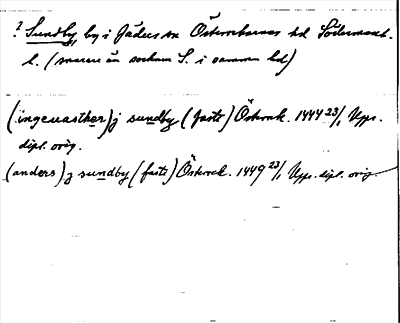 ? Sundby, by i Jäders sn Österrekarnes hd Södermanl.
l. (snarare än socknen S. i samma hd)
(ingeuasther) j sundby (faste) Österrek. 1444 23/1 Upps.
dipl. orig.
(anders) j sundby (faste) Österrek. 1449 23/1 Upps. dipl. orig.